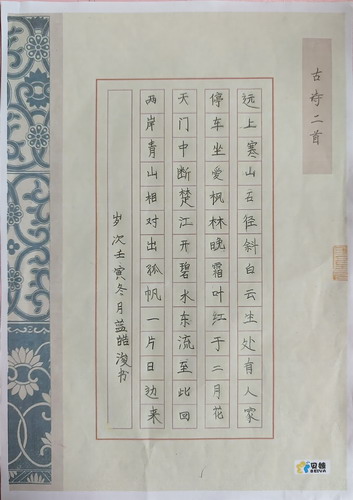 古诗二首
远上寒山石径斜白云生处有人家
停车坐爱枫林晚霜叶红于二月花
天门中断楚江开碧水东流至此回
两岸青山相对出孤帆一片日边来
岁次壬寅冬月蓝皓浚书
贝颖